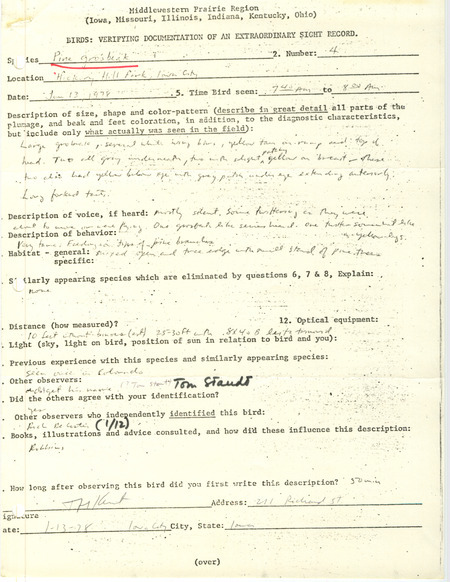 Middlewestern Prairie Region
(Iowa, Missouri, Illinois, Indiana, Kentucky, Ohio)
BIRDS: VERIFYING DOCUMENTATION OF AN EXTRAORDINARY SIGHT RECORD.
Species Pine Grosbeak 2. Number: 4
Location Hickory Hill Park, Iowa City
Date: Jan 13, 1978 5. Time Bird seen: 7:40 AM to 8:20 AM
Description of size, shape and color-pattern (describe in great detail all parts of the
plumage, and beak and feet coloration, in addition, to the diagnostic characteristics,
but include only what actually was seen in the field):
Large grosbeak, several white wing bars, yellow rump and top of
head. Two all gray underneath, two with slight yellow on breast - these
two also had yellow below eye with gray patch under eye extending
Long forked tail.
. Description of voice, if heard: mostly silent. Some twittering as they were
about to move or were flying. One
. Description of behavior:
very tame. Feeding in tops of pine branches
. Habitat - general: mixed open and tree edge with small stand of pine trees
specific:
Similarly appearing species which are eliminated by questions 6, 7 & 8, Explain:
none
. Distance (how measured)? 12. Optical equipment:
10 feet 25-30 ft with 8X40 B
. Light (sky, light on bird, position of sun in relation to bird and you):
. Previous experience with this species and similarly appearing species:
Seen once in Colorado
. Other observers:
name Tom Staudt
. Did the others agree with your identification?
yes
. Other observers who independently identified this bird:
(1/12)
. Books, illustrations and advice consulted, and how did these influence this description:
Robbins
. How long after observing this bird did you first write this description? 50 min
TH Kent Address: 211 Richard St
ignature
ate: 1-13-78 Iowa City City, State: Iowa
(over)